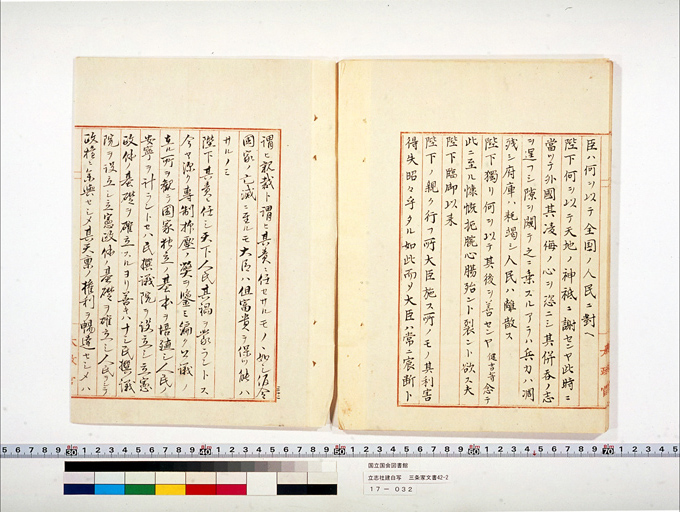 臣ハ何ヲ以テ全国ノ人民ニ對ヘ
陛下何ヲ以テ天地ノ神祗ニ謝センヤ此時ニ
當ツテ外國其凌侮ノ心ヲ恣ニシ其併呑ノ志
ヲ逞フシ隙ヲ闚テ之ニ乗スルアラハ兵力ハ凋
残シ府庫ハ耗竭シ人民ハ離散ス
陛下獨リ何ヲ以テ其後ヲ善センヤ 健吉等念テ
此ニ至ル慷慨扼腕心腸殆ント裂ント欲ス夫
陛下臨御以来
陛下ノ親ク行フ所大臣施ス所ノモノ其利害
得失昭々乎タル如此而メ大臣ハ常ニ宸断ト
謂ヒ親裁ト謂ヒ其責ニ任セサルモノヽ如シ仮令
國家ノ亡滅ニ至ルモ大臣ハ但富貴ヲ保ツ能ハ
サルノミ
陛下其責ニ任シ天下人民其禍ヲ蒙ラントス
今マ深ク専制抑壓ノ弊ヲ鑒ミ徧ク公議ノ
在ル所ヲ観テ國家独立ノ基本ヲ培植シ人民ノ
安寧ヲ計ラントセハ民撰議院ヲ設立シ立憲
政体ノ基礎ヲ確立スルヨリ善キハナシ民撰議
院ヲ設立シ立憲政体ノ基礎ヲ確立シ人民ヲシテ
政権ニ参與セシメ其天稟ノ権利ヲ暢達セシメハ
国立国会図書館
立志社建白写 三条家文書42-2
17－032